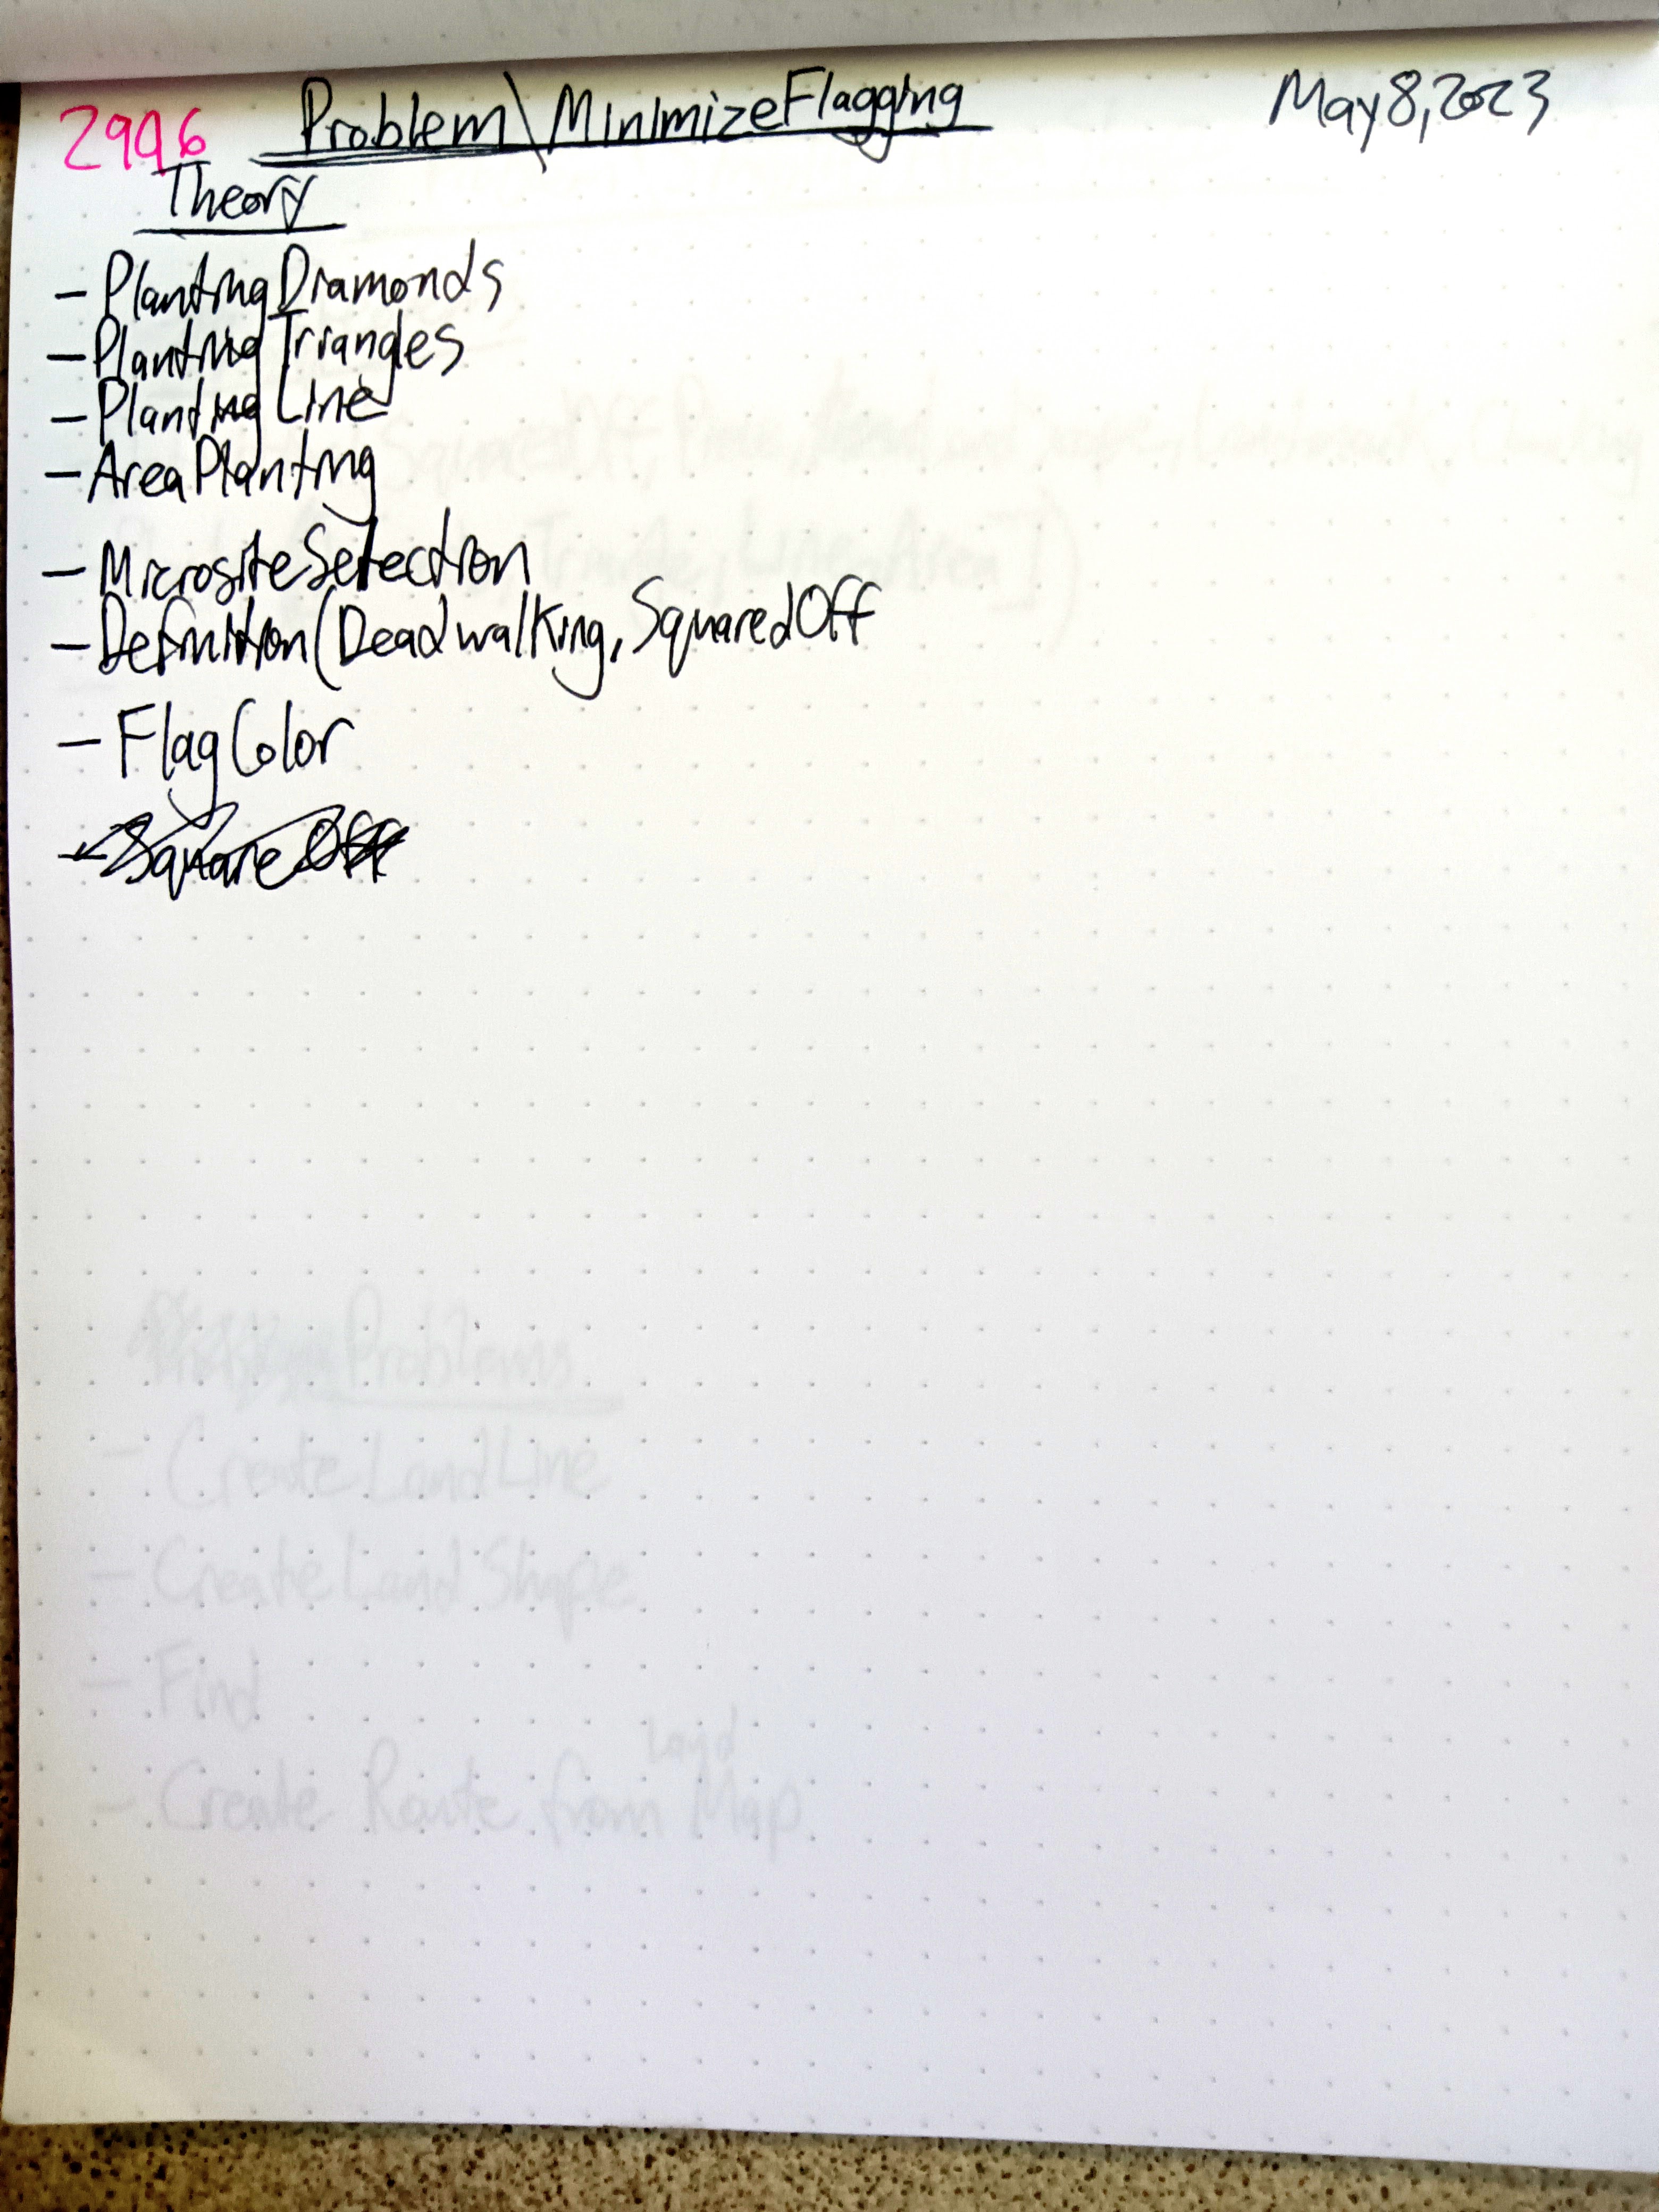 2996 Problem\MinimizeFlagging May 8, 2023
Theory
- Planting Diamonds
- Planting Triangles
- Planting Line
- Area Planting
- Microsite Selection
- Definition (Deadwalking, Squared Off
- Flag Color
- Square Off
Problems
- Create Land Line
- Create Land Shape
- Find
Land
- Create Route from Map